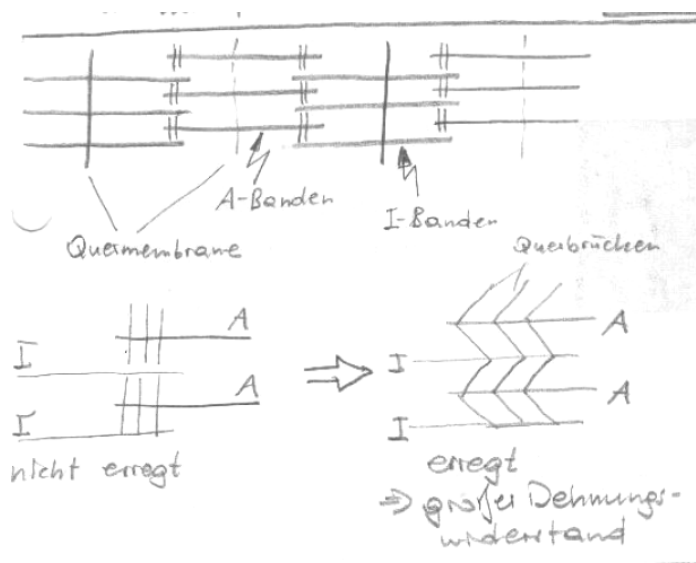 A-Banden
I-Banden
Quermembrane
Querbrücken
A
I
A
I
nicht erregt
A
I
A
I
erregt
⇒ großer Dehnungs-
widerstand